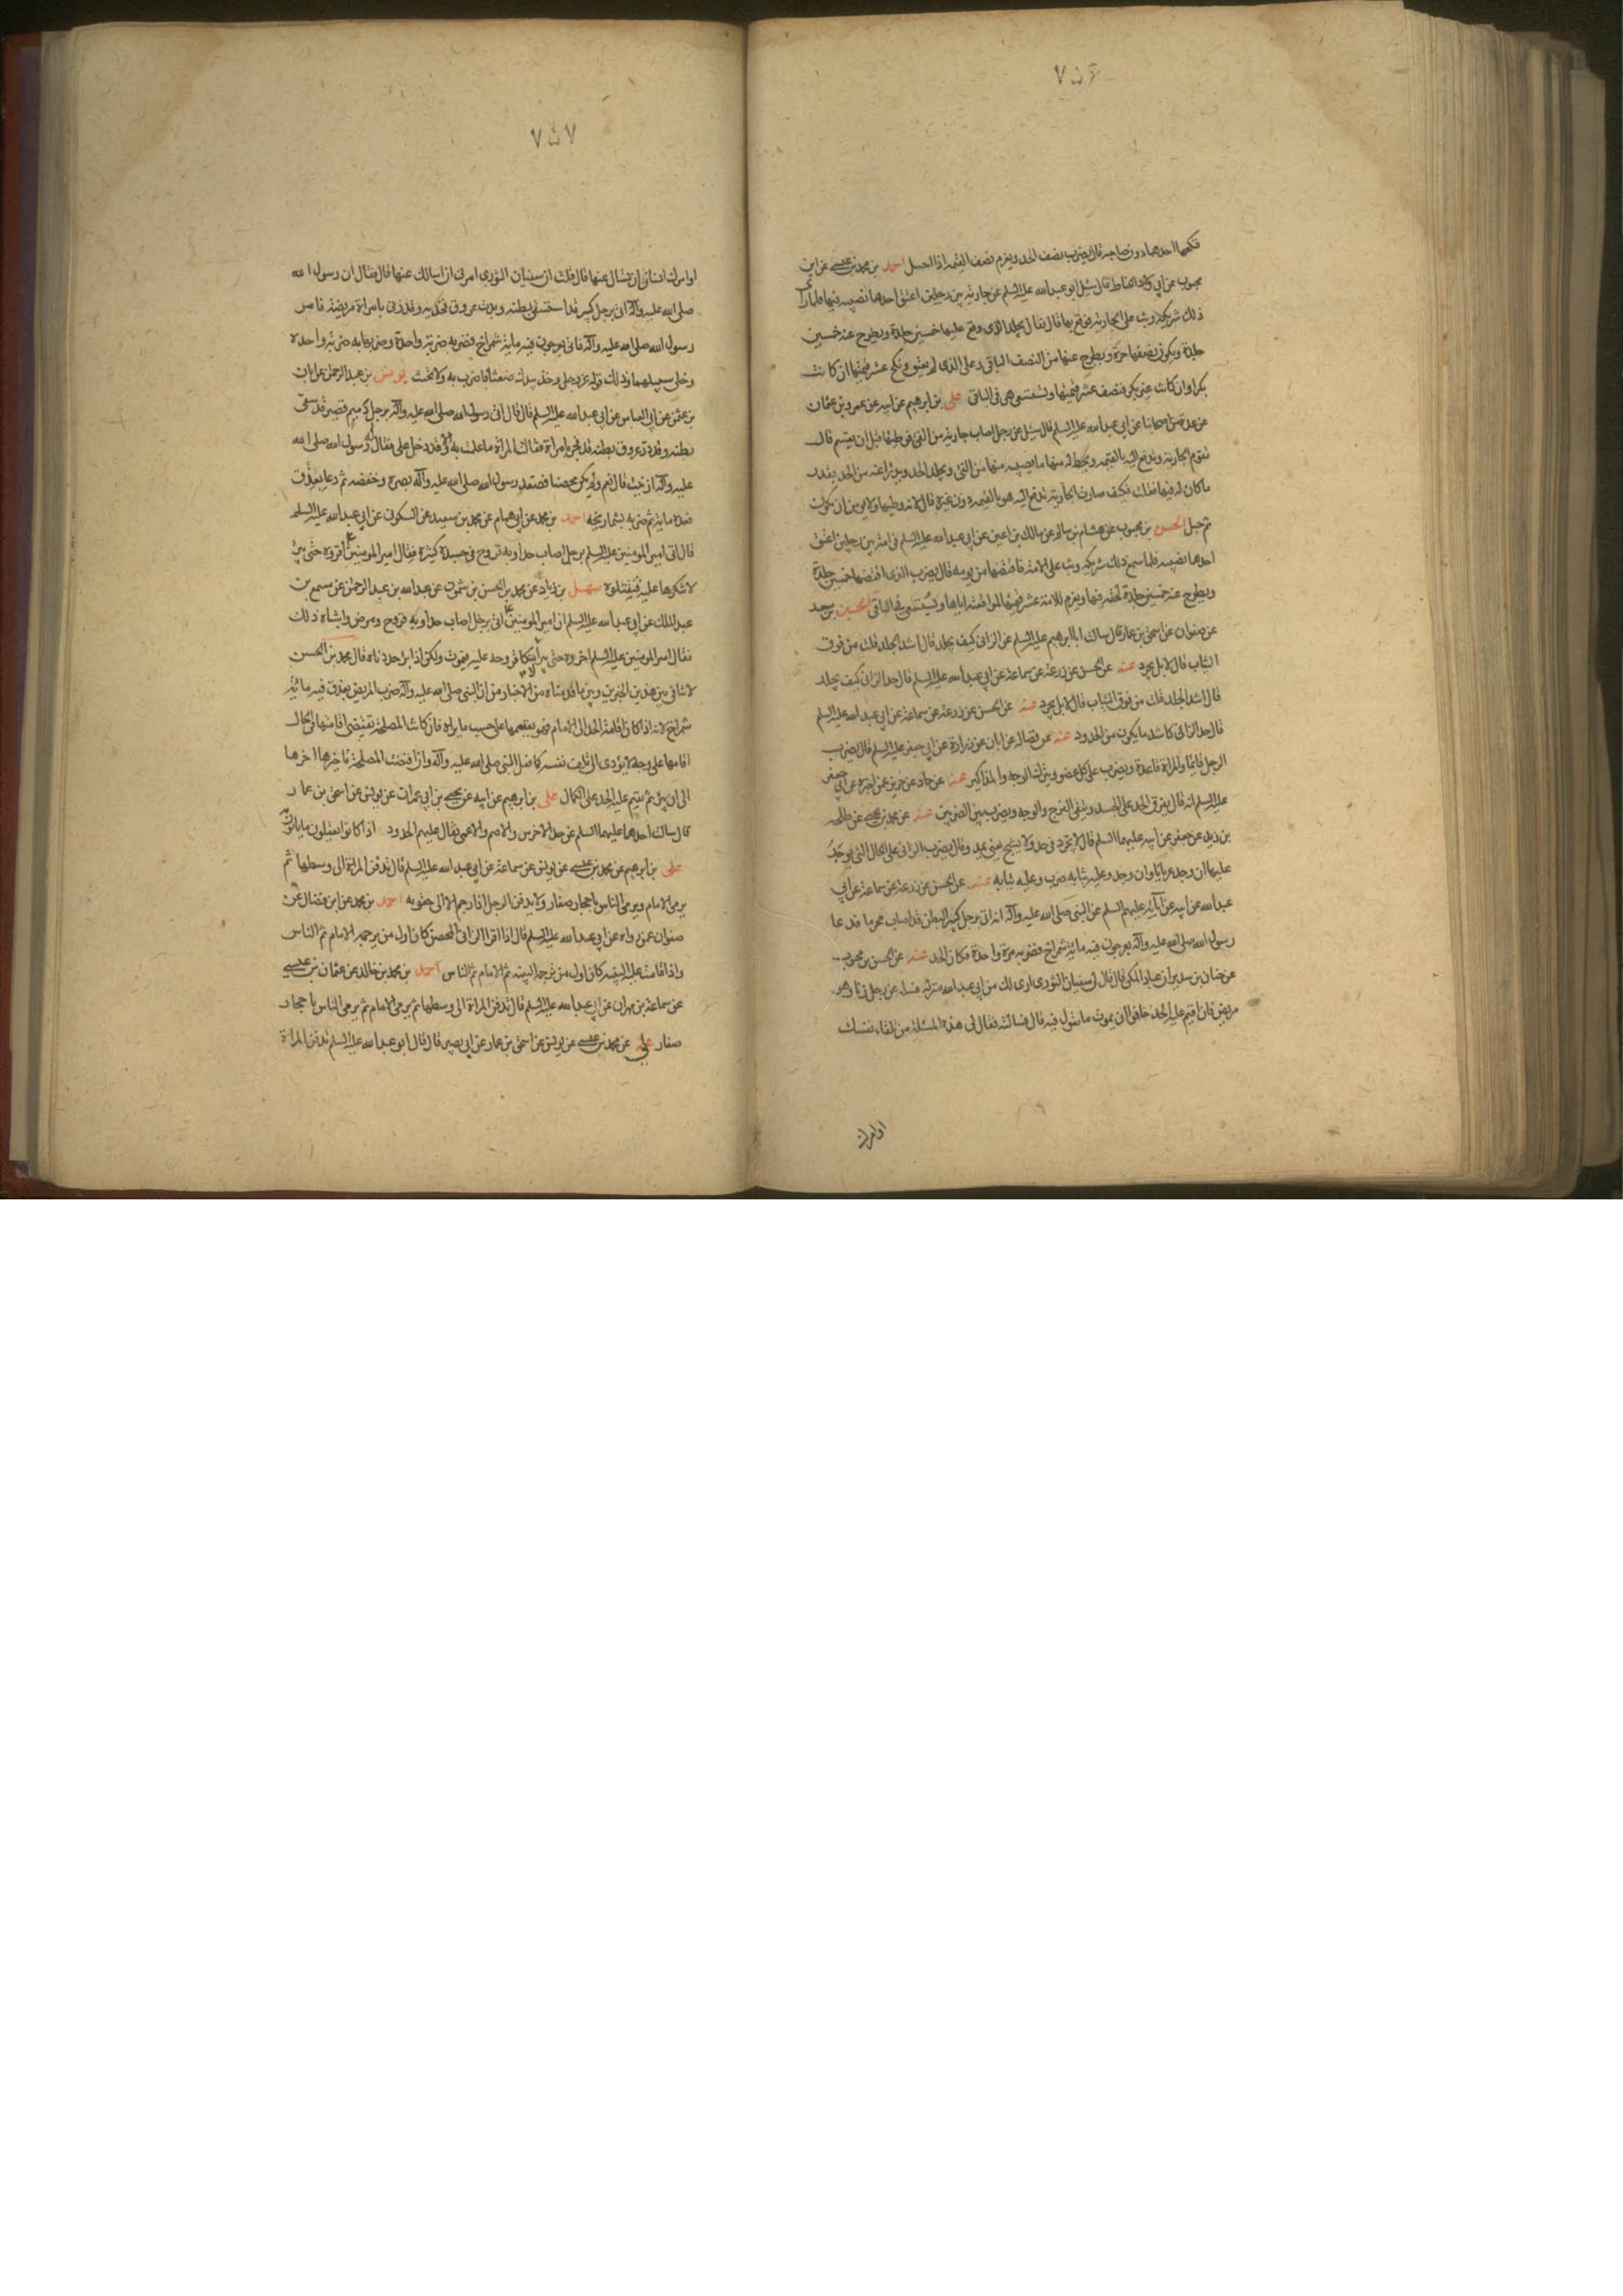 ٧٥٦
فنكحها احدهما دون صاحبه قال يضرب نصف الحد ويغرم نصف القيمة اذا احبل احمد بن محمد بن عيسى عن ابن
محبوب عن ابى ولاد الحناط قال سئل ابو عبد الله عليه السلم عن جارية بين رجلين اعتق احدهما نصيبه فيها فلما رأى
ذلك شريكه وثب على الجارية فوقع بها قال فقال يجلد الذى وقع عليها خمسين جلدة ويطرح عنه خمسين
جلدة ويكون نصفها حرة ويطرح عنها من النصف الباقى وعلى الذى لم يعتق ونكح عشر قيمتها ان كانت
بكرا وان كانت غير بكر فنصف عشر قيمتها وتستسعى هى فى الباقى على بن ابرهيم عن ابيه عن عمرو بن عثمان
عن عدة من اصحابنا عن ابى عبد الله عليه السلم قال سئل عن رجل اصاب جارية من الفئ فوطيها قبل ان يقسم قال
تقوم الجارية وتدفع اليه بالقيمه ويحط له منها ما يصيبه منها من الفئ ويجلد الحد ويدرا عنه من الحد بقدر
ما كان له فيها فقلت فكيف صارت الجارية تدفع اليه هو بالقيمه دون غيره قال لانه وطيها ولا يومن ان يكون
ثم حبل الحسن بن محبوب عن هشام بن سالم عن مالك بن اعين عن ابى عبد الله عليه السلم فى امة بين رجلين اعتق
احدهما نصيبه فلما سمع ذلك شريكه وثب على الامة فاقتضها من يومه قال يضرب الذى اقتضها خمسين جلدة
ويطرح عنه خمسين جلدة لحقه فيها ويغرم للامة عشر قيمتها لمواقعته اياها وتستسعى فى الباقى الحسين بن سعيد
عن صفوان عن اسحق بن عمار قال سالت ابا ابرهيم عليه السلم عن الزانى كيف يجلد قال اشد الجلد قلت من فوق
الثياب قال لا بل يجرد عنه عن الحسن عن زرعة عن سماعة عن ابى عبد الله عليه السلم قال حد الزانى كيف يجلد
قال اشد الجلد قلت من فوق الثياب قال لا بل يجرد عنه عن الحسن عن زرعة عن سماعة عن ابى عبد الله عليه السلم
قال حد الزانى كاشد ما يكون من الحدود عنه عن فضاله عن ابان عن زرارة عن ابى جعفر عليه السلم قال يضرب
الرجل قايما والمراة قاعدة ويضرب على كل عضو ويترك الوجه والمذاكير عنه عن حماد عن حريز عمن اخبره عن ابى جعفر
عليه السلم انه قال يفرق الحد على الجسد ويتقى الفرج والوجه ويضرب بين الضربين عنه عن محمد بن يحيى عن طلحة
بن زيد عن جعفر عن ابيه عليهما السلم قال لا يجرد فى حد ولا يشبح يعنى يمد وقال يضرب الزانى على الحال التى يوجد
عليها ان وجد عريانا وان وجد وعليه ثيابه ضرب وعليه ثيابه عنه عن الحسن عن زرعة عن سماعة عن ابى
عبد الله عن ابيه عن آبائه عليهم السلم عن النبى صلى الله عليه وآله انه اتى برجل كبير البطن قد اصاب محرما فدعا
رسول الله صلى الله عليه وآله بعرجون فيه ماية شمراخ فضربه مرة واحدة فكان الحد عنه عن الحسن بن محبوب
عن حنان بن سدير ان عباد المكى قال قال لى سفيان الثورى ارى لك من ابى عبد الله منزلة فسله عن رجل زنا وهو
مريض فان اقيم عليه الحد خافوا ان يموت ما تقول فيه قال فسالته فقال لى هذه المسئلة من تلقاء نفسك
او امرك
٧٥٧
او امرك انسان ان تسال عنها قال قلت ان سفيان الثورى امرنى ان اسالك عنها قال فقال ان رسول الله
صلى الله عليه وآله اتى برجل كبير قد استسقى بطنه وبدت عروق فخذيه وقد زنى بامراة مريضة فامر
رسول الله صلى الله عليه وآله فاتى بعرجون فيه ماية شمراخ فضربه ضربة واحدة وضربها به ضربة واحدة
وخلى سبيلهما وذلك قوله عز وجل وخذ بيدك ضغثا فاضرب به ولا تحنث يونس بن عبد الرحمن عن ابان
بن عثمن عن ابى العباس عن ابى عبد الله عليه السلم قال قال اتى رسول الله صلى الله عليه وآله برجل دميم قصير قد سقى
بطنه وقد در عروق بطنه قد فجر بامراة فقالت المراة ما علمت به الا وقد دخل على فقال له رسول الله صلى الله
عليه وآله ازنيت قال نعم ولم يكن محصنا فصعد رسول الله صلى الله عليه وآله بصره وخفضه ثم دعا بعذق
فعده ماية ثم ضربه بشماريخه احمد بن محمد عن ابى همام عن محمد بن سعيد عن السكونى عن ابى عبد الله عليه السلم
قال اتى امير المومنين عليه السلم برجل اصاب حدا وبه قروح فى جسده كثيرة فقال امير المومنين ع اقروه حتى يبرئ
لا تنكوها عليه فتقتلوه سهل بن زياد عن محمد بن الحسن بن شمون عن عبد الله بن عبد الرحمن عن مسمع بن
عبد الملك عن ابى عبد الله عليه السلم ان امير المومنين ع اتى برجل اصاب حدا وبه قروح ومرض واشباه ذلك
فقال امير المومنين عليه السلم اخروه حتى يبرأ لا تنكا قروحه عليه فيموت ولكن اذا برئ حددناه قال محمد بن الحسن
لا تنافى بين هذين الخبرين وبين ما قدمناه من الاخبار من ان النبى صلى الله عليه وآله ضرب المريض بعذق فيه مائة
شمراخ لانه اذا كان اقامة الحد الى الامام فهو يقيمها على حسب ما يراه فان كانت المصلحة تقتضى اقامتها فى الحال
اقامها على وجه لا يؤدى الى تلف نفسه كما فعل النبى صلى الله عليه وآله وان اقتضت المصلحة تاخيرها اخرها
الى ان يبرئ ثم يقيم عليه الحد على الكمال على بن ابرهيم عن ابيه عن يحيى بن ابى عمران عن يونس عن اسحق بن عمار
قال سالت احدهما عليهما السلم عن حد الاخرس والاصم والاعمى فقال عليهم الحدود اذا كانوا يعقلون ما ياتون به
على بن ابرهيم عن محمد بن عيسى عن يونس عن سماعة عن ابى عبد الله عليه السلم قال تدفن المراة الى وسطها ثم
يرمى الامام ويرمى الناس باحجار صغار ولا يدفن الرجل اذا رجم الا الى حقويه احمد بن محمد عن ابن فضال عن
صفوان عمن رواه عن ابى عبد الله عليه السلم قال اذا اقر الزانى المحصن كان اول من يرجمه الامام ثم الناس
واذا قامت عليه البينة كان اول من يرجمه البينة ثم الامام ثم الناس احمد بن محمد بن خالد عن عثمان بن عيسى
عن سماعة بن مهران عن ابى عبد الله عليه السلم قال تدفن المراة الى وسطها ثم يرمى الامام ثم يرمى الناس باحجار
صغار على عن محمد بن عيسى عن يونس عن اسحق بن عمار عن ابى بصير قال قال ابو عبد الله عليه السلم تدفن المراة